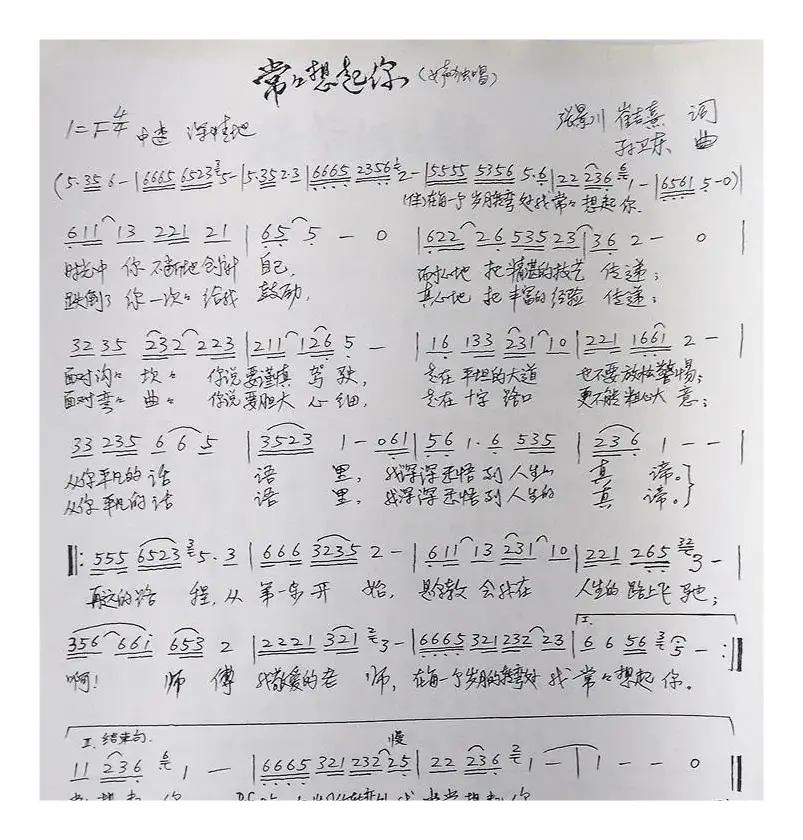 常々想起你(女声独唱)
1=F 4/4 中速 深情地
张景川 崔吉熹 词
孙卫东 曲
(5.35 6 - | 6665 6523 5 - | 5.35 2.3 | 6665 2356 2 - | 5555 5356 5.6 | 22 236 1 - | 6561 5 - 0)
在每一个岁月转弯处我常々想起你.
611 13 221 21 | 65 5 - 0 | 622 26 535 23 | 36 2 - 0 |
时光中 你不断地 自己, 而把精湛的技艺 传递;
跌倒了 你一次々给我 鼓励, 真心地 把丰富的经验 传递;
32 35 232 223 | 211 126 5 - | 16 133 231 10 | 221 1661 2 - |
面对沟々 坎々 你说要谨慎 驾驶, 走在平坦的大道 也不要放松警惕;
面对弯々 曲々 你说要胆大 心细, 走在十字路口 更不能粗心大 意;
33 235 6 6 5 | 3523 1 - 061 | 56 1.6 535 | 236 1 - - |
从你平凡的话 语 里, 我深深感悟到人生的 真 谛。
从你平凡的话 语 里, 我深深感悟到人生的 真 谛。
‖: 555 6523 5.3 | 666 3235 2 - | 611 13 231 10 | 221 265 3 - |
再远的路 程, 从 第一步开 始, 是你教 会我在 人生的路上飞 驰;
I.
356 661 653 2 | 2221 321 3 - | 6665 321 232 23 | 6 6 56 5 - :‖
啊! 师 傅 我敬爱的老 师, 在每一个岁月的转弯处 我 常々想起你。
II. 结束句. 慢
11 236 1 - | 6665 321 232 25 | 22 236 1 - | 1 - - 0 ‖